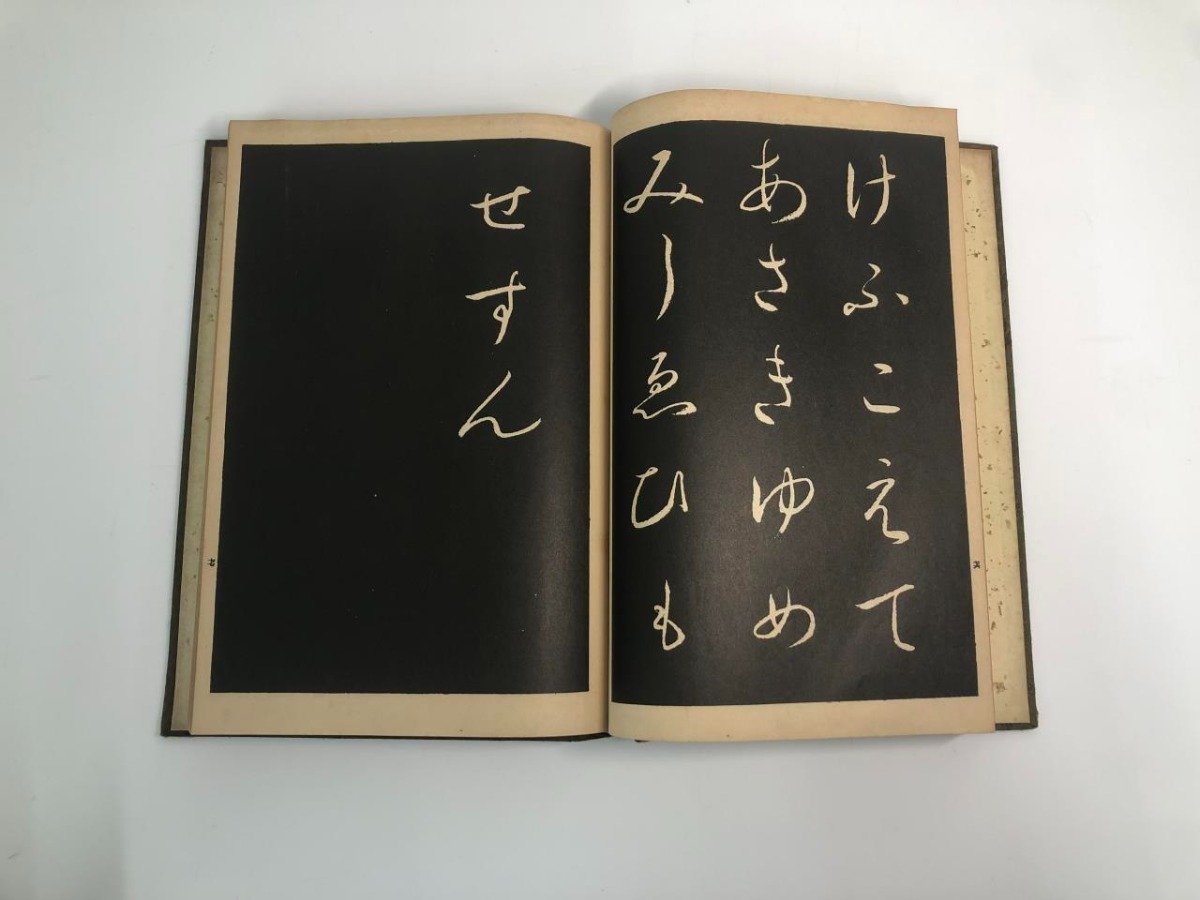 けふこえて
あさきゆめ
みしゑひも
せすん